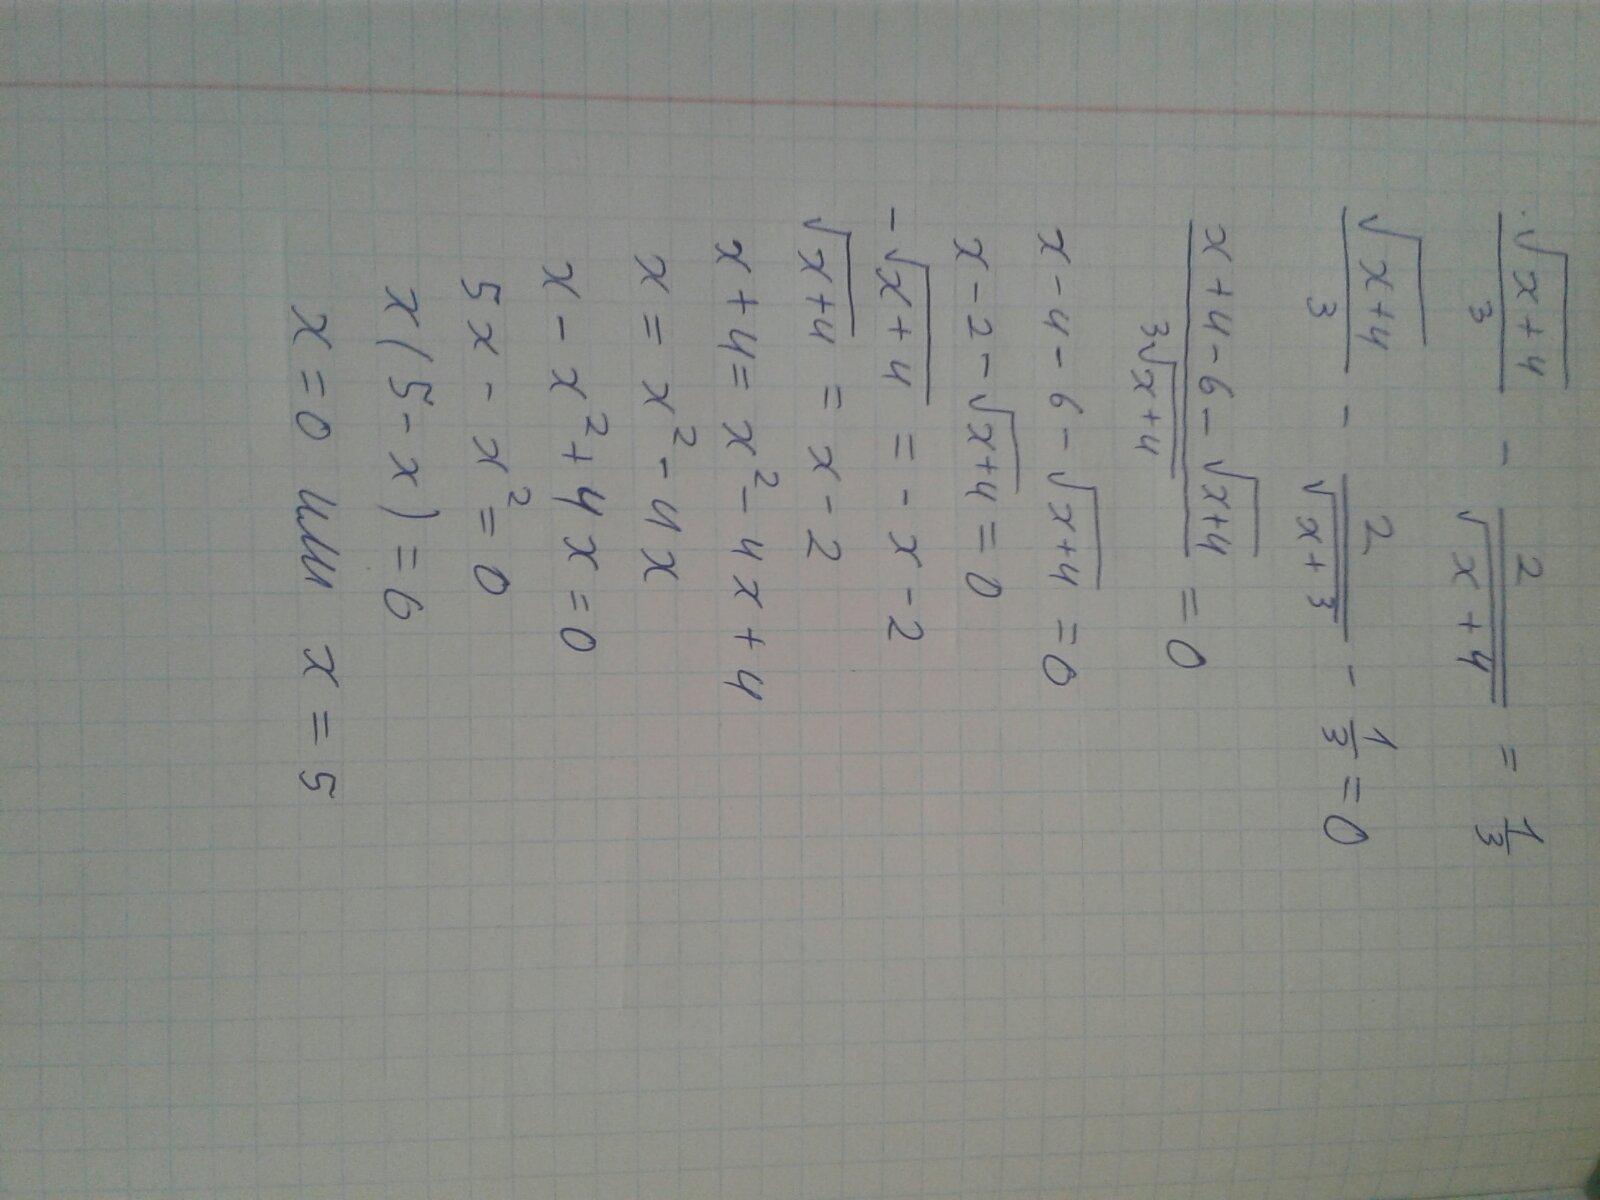 √(x+4)/3 - 2/√(x+4) = 1/3
√(x+4)/3 - 2/√(x+3) - 1/3 = 0
(x+4-6-√(x+4))/(3√(x+4)) = 0
x-4-6-√(x+4) = 0
x-2-√(x+4) = 0
-√(x+4) = -x-2
√(x+4) = x-2
x+4 = x²-4x+4
x = x²-4x
x-x²+4x = 0
5x-x² = 0
x(5-x) = 6
x = 0 или x = 5